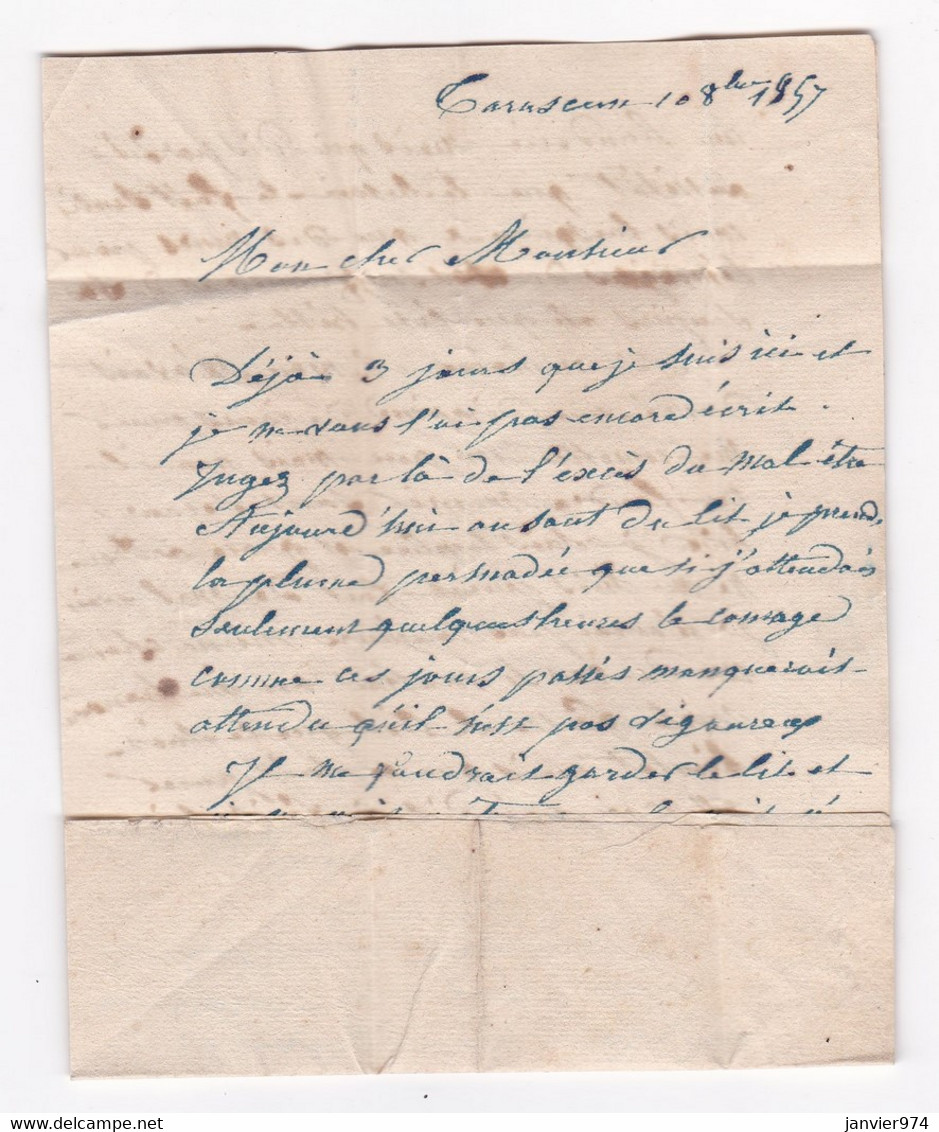 Tarascon 10 8bre 1857
Mon cher Monsieur
Déjà 3 jours que je suis ici et
je ne vous l'ai pas encore écrit.
Jugez par là de l'excès du mal être
Aujourd'hui au saut du lit je prends
la plume persuadée que si j'attendais
seulement quelques heures le courage
comme ces jours passés manquerait
attendu qu'il n'est pas vigoureux
Il me faudrait garder le lit et
janvier974